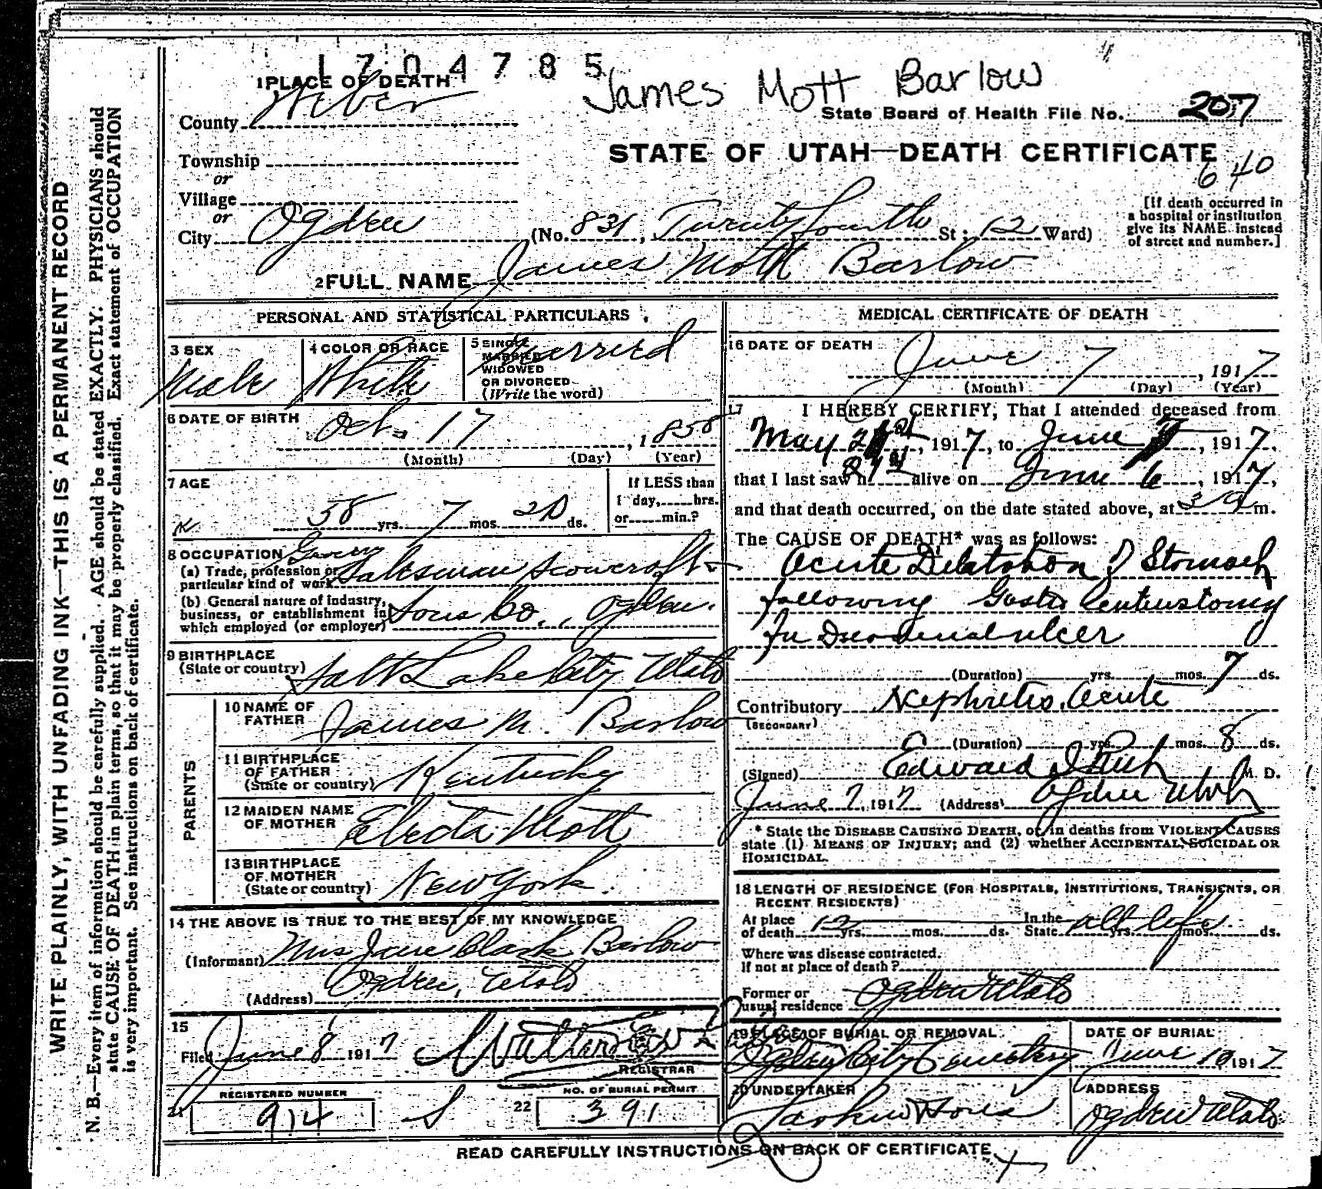 1704785
James Mott Barlow
1 PLACE OF DEATH
County Weber
State Board of Health File No. 207
STATE OF UTAH—DEATH CERTIFICATE
640
Township
or
Village
or
City Ogden (No. 831, Twenty fourth St; 12 Ward)
[If death occurred in
a hospital or institution
give its NAME instead
of street and number.]
2 FULL NAME James Mott Barlow
PERSONAL AND STATISTICAL PARTICULARS
3 SEX
Male
4 COLOR OR RACE
White
5 SINGLE
MARRIED
WIDOWED
OR DIVORCED
(Write the word)
Married
6 DATE OF BIRTH
Oct. 17, 1858
(Month) (Day) (Year)
7 AGE
58 yrs. 7 mos. 20 ds.
If LESS than
1 day,......hrs.
or......min.?
8 OCCUPATION
(a) Trade, profession or
particular kind of work Salesman Scowcroft
(b) General nature of industry,
business, or establishment in
which employed (or employer) Sons Co., Ogden.
9 BIRTHPLACE
(State or country) Salt Lake City Utah
PARENTS
10 NAME OF
FATHER James M. Barlow
11 BIRTHPLACE
OF FATHER
(State or country) Kentucky
12 MAIDEN NAME
OF MOTHER Electa Mott
13 BIRTHPLACE
OF MOTHER
(State or country) New York.
14 THE ABOVE IS TRUE TO THE BEST OF MY KNOWLEDGE
(Informant) Mrs Jane Clark Barlow
(Address) Ogden, Utah
15
Filed June 8 1917
REGISTRAR
REGISTERED NUMBER
21 914
NO. OF BURIAL PERMIT
22 391
MEDICAL CERTIFICATE OF DEATH
16 DATE OF DEATH
June 7, 1917
(Month) (Day) (Year)
17 I HEREBY CERTIFY, That I attended deceased from
May 21st, 1917, to June 7, 1917,
that I last saw h alive on June 6, 1917,
and that death occurred, on the date stated above, at 3 m.
The CAUSE OF DEATH* was as follows:
Acute Dilatation of Stomach
following Gastro Enterostomy
for Duodenal ulcer
(Duration) yrs. mos. 7 ds.
Contributory Nephritis, acute
(SECONDARY)
(Duration) yrs. mos. 8 ds.
(Signed) Edward I Rich M. D.
June 7, 1917 (Address) Ogden Utah
* State the DISEASE CAUSING DEATH, or, in deaths from VIOLENT CAUSES
state (1) MEANS OF INJURY; and (2) whether ACCIDENTAL, SUICIDAL OR
HOMICIDAL.
18 LENGTH OF RESIDENCE (FOR HOSPITALS, INSTITUTIONS, TRANSIENTS, OR
RECENT RESIDENTS)
At place
of death 12 yrs. mos. ds. In the
State all life yrs. mos. ds.
Where was disease contracted.
If not at place of death?
Former or
usual residence Ogden Utah
19 PLACE OF BURIAL OR REMOVAL
Ogden City Cemetery
DATE OF BURIAL
June 10 1917
20 UNDERTAKER
Larkin & Sons
ADDRESS
Ogden Utah
READ CAREFULLY INSTRUCTIONS ON BACK OF CERTIFICATE
WRITE PLAINLY, WITH UNFADING INK—THIS IS A PERMANENT RECORD
N. B.—Every item of information should be carefully supplied. AGE should be stated EXACTLY. PHYSICIANS should
state CAUSE OF DEATH in plain terms, so that it may be properly classified. Exact statement of OCCUPATION
is very important. See instructions on back of certificate.